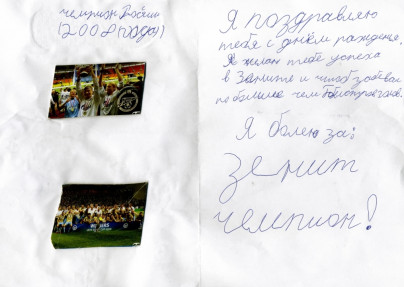 чемпион России
(2008 года)
Я поздравляю
тебя с днём рождения.
Я желаю тебе успеха
в Зените и чтоб забивал
побольше чем
Я болею за:
зенит
чемпион!